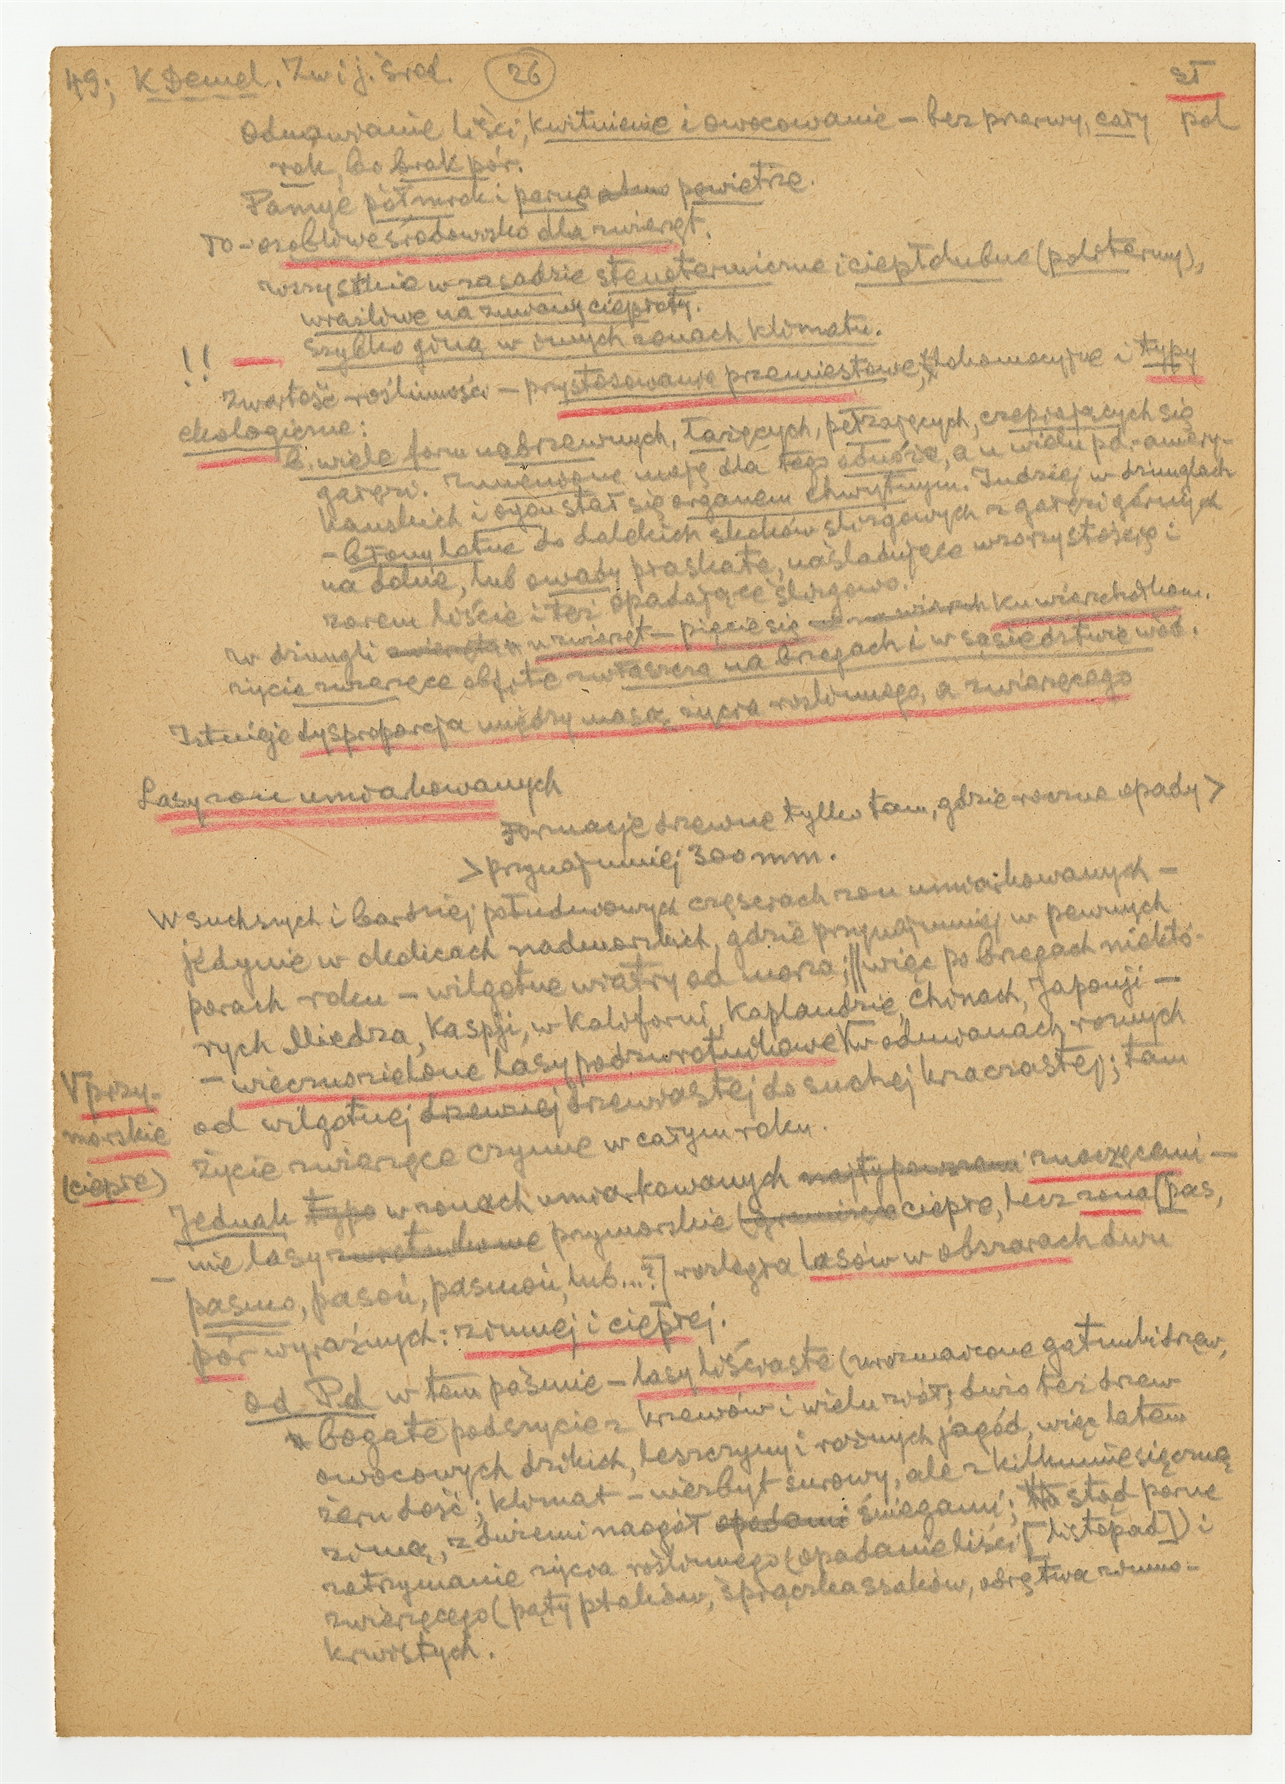 49; K Demel. Zw i j. środ. 26 st
Odnawianie liści, kwitnienie i owocowanie – bez przerwy, cały pol
rok, bo brak pór.
Panuje półmrok i parne powietrze.
To – osobliwe środowisko dla zwierząt.
wszystkie w zasadzie stenotermiczne i ciepłolubne (politermy),
wrażliwe na zmiany ciepłoty.
szybko giną w innych zonach klimatu.
!! zwartość roślinności – przystosowania przemiestowe, lokomocyjne i typy
ekologiczne:
b. wiele form nadrzewnych, łażących, pełzających, czepiających się
gałęzi. Zmienione mają dla tego odnóża, a u wielu pd.-amery-
kańskich i ogon stał się organem chwytnym. Indziej w dżunglach
– błony lotne do dalekich skoków ślizgowych z gałęzi górnych
na dolne, lub owady płaskate, naśladujące wzorzystością i
zarem liście i też opadające ślizgowo.
w dżungli zwierzęta u zwierząt – pięcie się ku wierzchołkom.
życie zwierzęce obfite zwłaszcza na brzegach i w sąsiedztwie wód.
Istnieje dysproporcja między masą życia roślinnego, a zwierzęcego
Lasy zon umiarkowanych
Formacje drzewne tylko tam, gdzie roczne opady >
> przynajmniej 300 mm.
W suchszych i bardziej południowych częściach zon umiarkowanych –
jedynie w okolicach nadmorskich, gdzie przynajmniej w pewnych
porach roku – wilgotne wiatry od morza; || więc po brzegach niektó-
rych Miedza, Kaspji, w Kaliforni, Kaplandzie, Chinach, Japonji –
– wiecznozielone lasy podzwrotnikowe V w odmianach roznych
V przy-
morskie
(ciepłe)
od wilgotnej drzewnej drzewiastej do suchej krzaczastej; tam
życie zwierzęce czynne w całym roku.
Jednak typo w zonach umiarkowanych najtypowszemi znaczącemi –
– nie lasy zwrotnikowe przymorskie (graniczące ciepłe, lecz zona (pas,
pasmo, pasoń, pasmoń, lub...?] rozległa lasów w obszarach dwu
pór wyraźnych: zimnej i ciepłej.
od Pd w tem paśmie – lasy liściaste (urozmaicone gatunki drzew,
bogate podszycie z krzewów i wielu ziół; dużo też drzew
owocowych dzikich, leszczyny i rożnych jagód, więc latem
żeru dość; klimat – niezbyt surowy, ale z kilkumiesięczną
zimą, z dużemi naogół opadami śniegami; stąd porne
zatrzymanie życia roślinnego (opadanie liści [listopad]) i
zwierzęcego (pąty ptaków, śpiączka ssaków, odrętwa zimno-
krwistych.